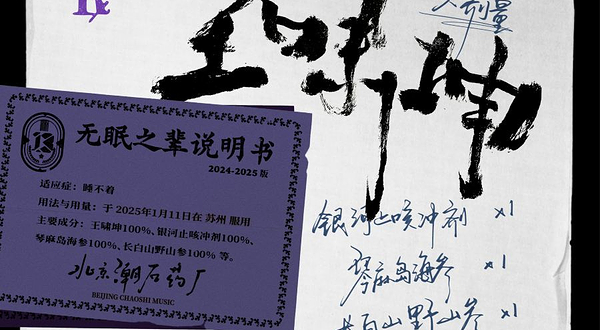 王啸坤
无眠之辈说明书
2024-2025 版
适应症：睡不着
用法与用量：于 2025年1月11日在 苏州 服用
主要成分：王啸坤100%、银河止咳冲剂100%、
琴麻岛海参100%、长白山野山参100% 等。
北京潮石药厂
BEIJING CHAOSHI MUSIC
银河止咳冲剂 ×1
琴麻岛海参 ×1
长白山野山参 ×1